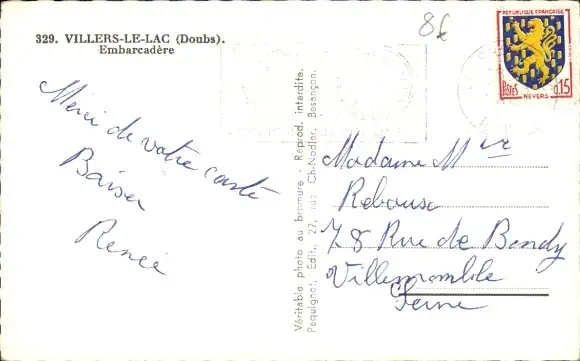 8f
329. VILLERS-LE-LAC (Doubs).
Embarcadère
REPUBLIQUE FRANÇAISE
POSTES
0,15
NEVERS
Merci de votre carte
Baiser
Renée
Véritable photo au bromure - Reprod. interdite.
Pequignot, Edit., 27, rue Ch-Nodier, Besançon.
Madame Mve
Reboux
78 Rue de Bondy
Villemomble
Seine